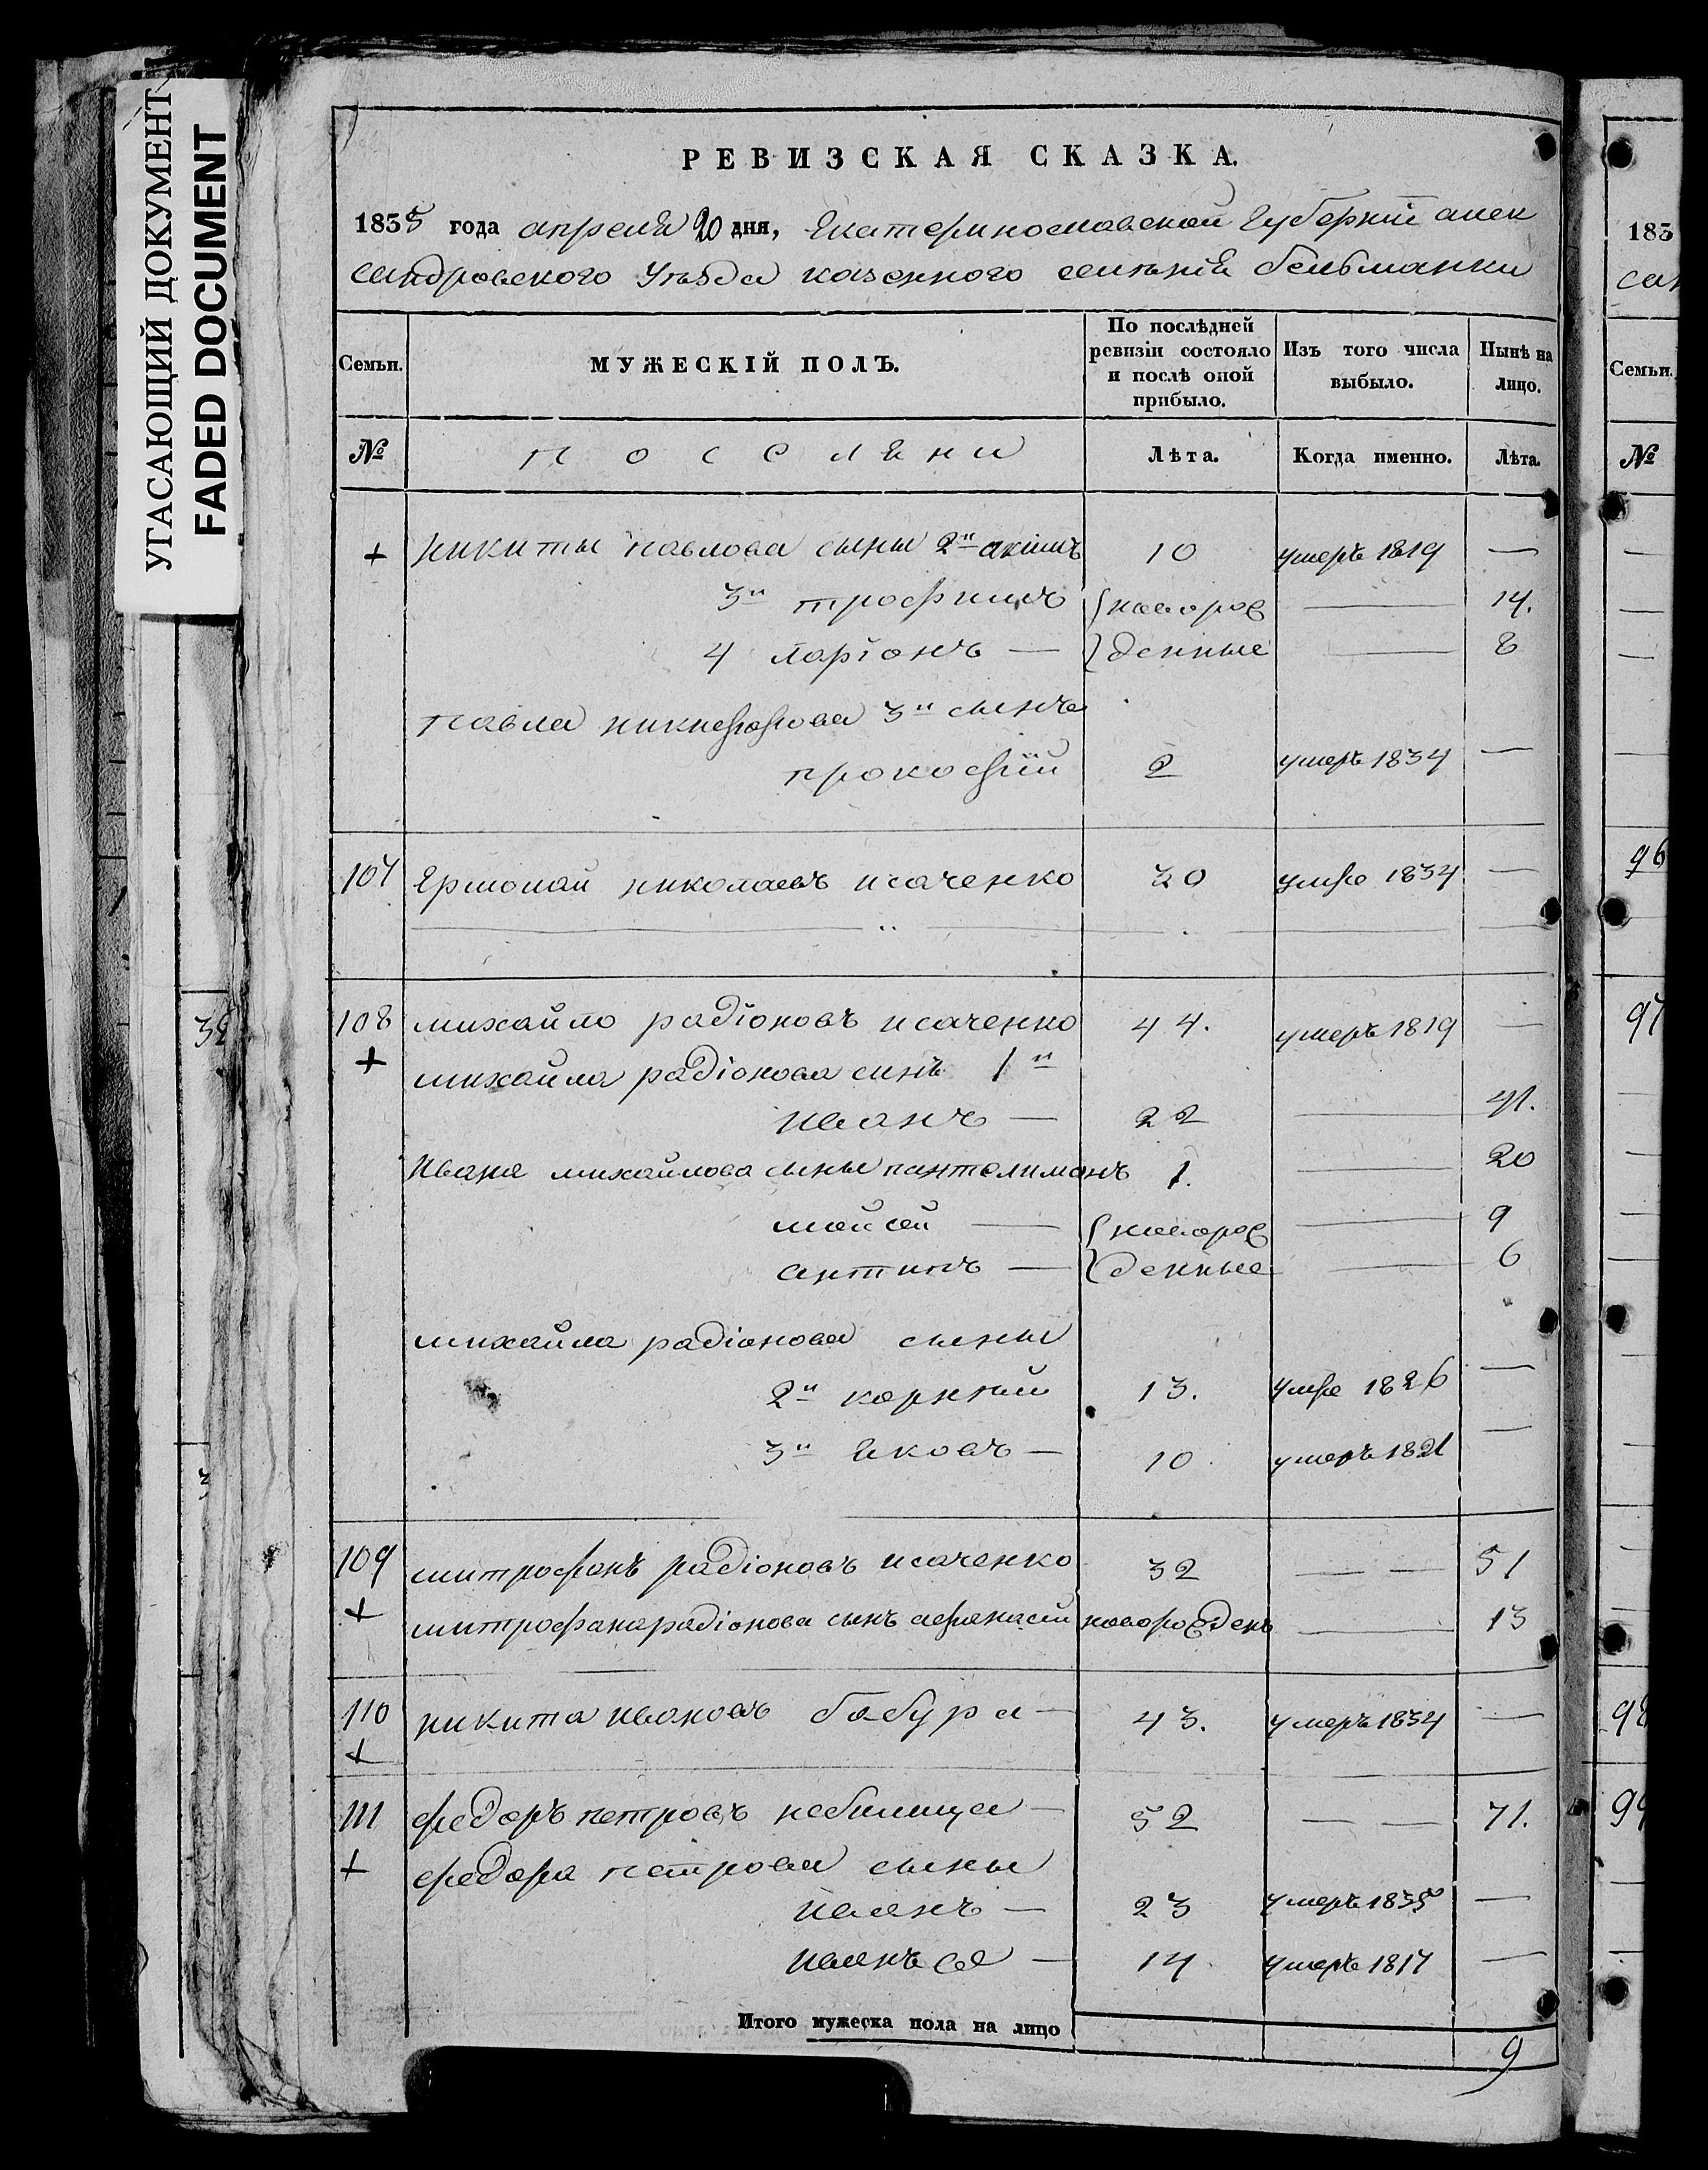 УГАСАЮЩИЙ ДОКУМЕНТ
FADED DOCUMENT
РЕВИЗСКАЯ СКАЗКА.
1835 года апреля 20 дня, Екатеринославской Губернїи алек
сандровского Уѣзда казенного селѣнїя бельманки
Семьи.
МУЖЕСКІЙ ПОЛЪ.
По послѣдней ревизіи состояло и послѣ оной прибыло.
Изъ того числа выбыло.
Нынѣ на лицо.
№
п о с е л я н и
Лѣта.
Когда именно.
Лѣта.
+ никиты павлова сыны 2й акимъ 10 умеръ 1819 —
3й трофимъ { новорож — 14.
4 ларіонъ — } денные — 8
павла никифорова 3й сынъ
прокофїй 2 умеръ 1834 —
107 Ермолай николаевъ исаченко 30 умре 1834 —
108 михайло радїоновъ исаченко 44. умеръ 1819 —
+ михайла радїонова сынъ 1й
иванъ — 22 — 41.
ивана михайлова сыны пантелимонъ 1. — 20
мойсей — { новорож — 9
антипъ — } денные — 6
михайла радїонова сыны
2й корнѣй 13. умре 1826 —
3й яковъ — 10. умеръ 1821 —
109 митрофанъ радїоновъ исаченко 32 — — 51
+ митрофана радїонова сынъ афанасій новорожденъ — 13
110 никита ивановъ бабура — 43. умеръ 1834 —
+
111 федоръ петровъ небилица — 52 — — 71.
+ федора петрова сыны
иванъ — 23 умеръ 1835 —
иванъ же — 14. умеръ 1817 —
Итого мужеска пола на лицо 9
183
сан
Семьи.
№
96
97
98
99